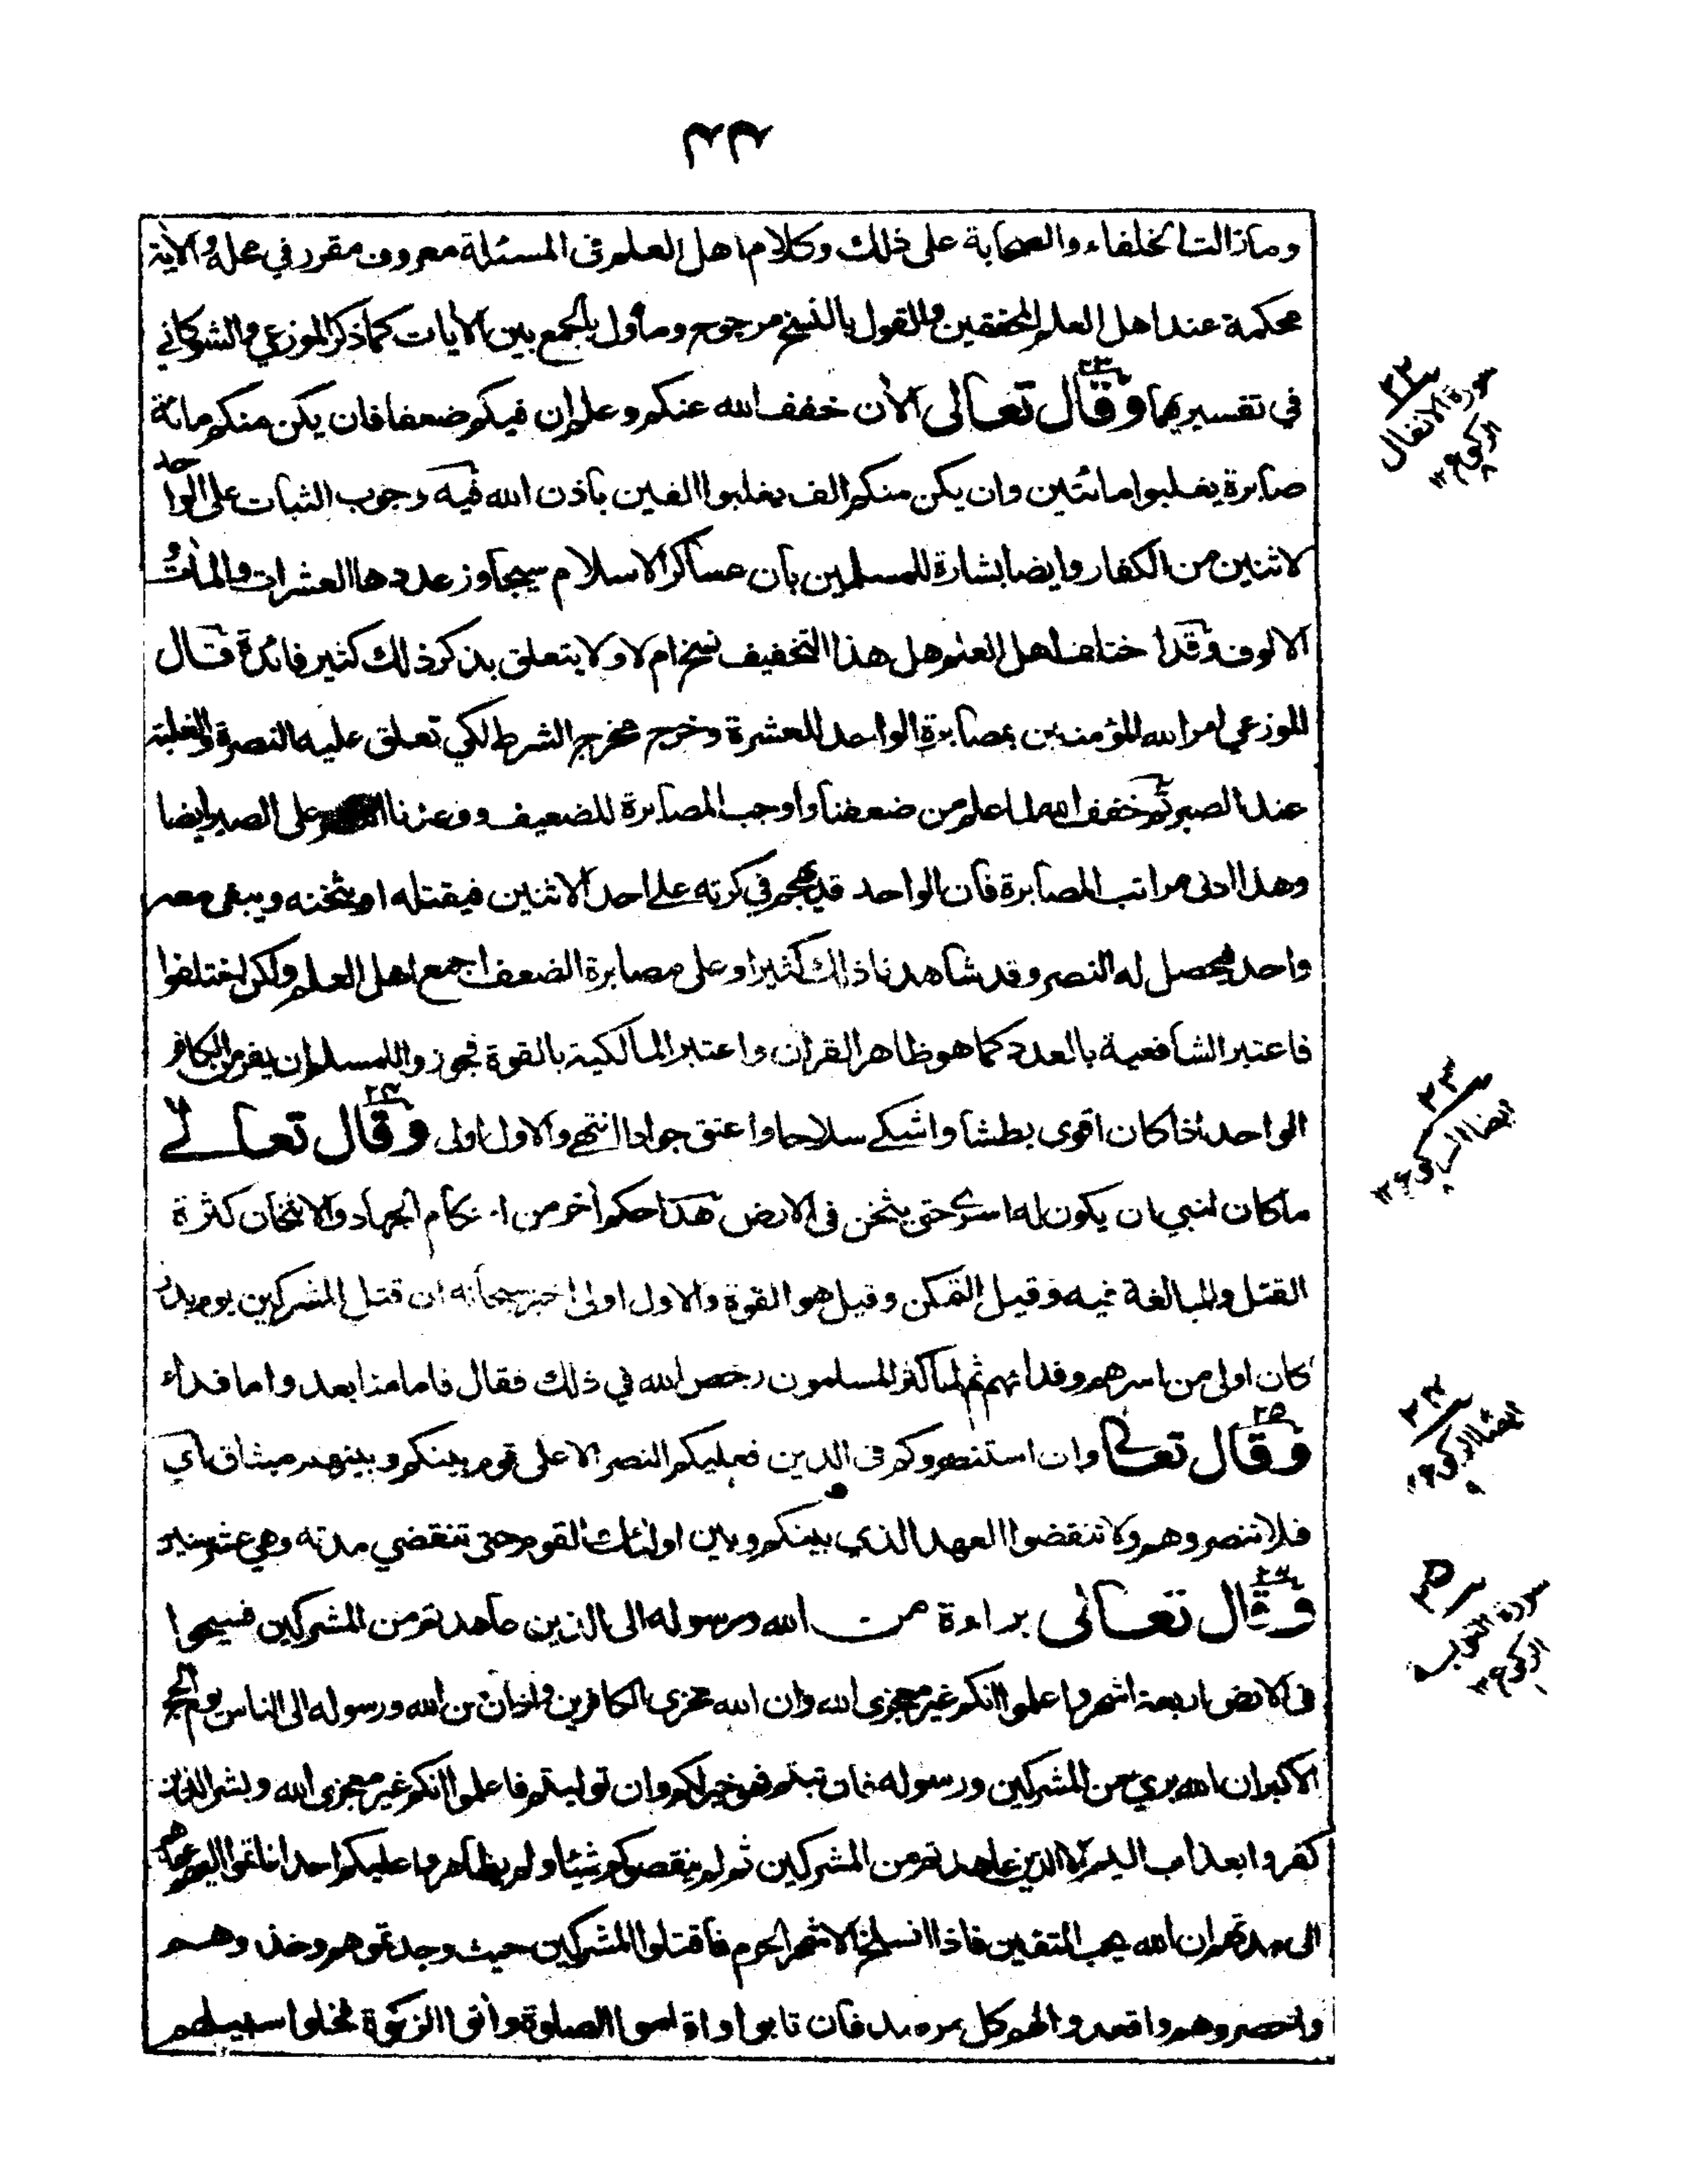 ٣٣
وما زالت الخلفاء والصحابة على ذلك وكلام اهل العلم فى المسئلة معروف مقرر في محله والآية
محكمة عند اهل العلم المحققين والقول بالنسخ مرجوح ومأول بالجمع بين الأيات كما ذكر الموزعي والشوكاني
في تفسيريهما وقال تعالى ألأن خفف الله عنكم وعلم ان فيكم ضعفا فان يكن منكم مائة
صابرة يغلبوا مائتين وان يكن منكم الف يغلبوا الفين باذن الله فيه وجوب الثبات على الواحد
لاثنين من الكفار وايضا بشارة للمسلمين بان عساكر الاسلام سيجاوز عددها العشرات والمأت
الالوف وقد اختلف اهل العلم هل هذا التخفيف نسخ ام لا ولا يتعلق بذكر ذلك كثير فائدة قال
الموزعي امر الله المؤمنين بمصابرة الواحد للعشرة وخرج مخرج الشرط لكي تعلق عليه النصرة والغلبة
عند الصبر ثم خفف الله لما علم من ضعفنا واوجب المصابرة للضعيف ووعدنا على الصبر ايضا
وهذا ادنى مراتب المصابرة فان الواحد قد يهجم في كرته على احد الاثنين فيقتله او يثخنه ويبقى معه
واحد فيحصل له النصر وقد شاهدنا ذلك كثيرا وعلى مصابرة الضعف اجمع اهل العلم ولكن اختلفوا
فاعتبر الشافعية بالعدد كما هو ظاهر القرآن واعتبر المالكية بالقوة فجوزوا للمسلم ان يفر من الكافر
الواحد اذا كان اقوى بطشا واشكى سلاحا واعتق جوادا انتهى والاول اولى وقال تعالے
ما كان لنبي ان يكون له اسرى حتى يثخن فى الارض هذا حكم أخر من احكام الجهاد والاثخان كثرة
القتل والمبالغة فيه وقيل التمكن وقيل هو القوة والاول اولى اخبر سبحانه ان قتل المشركين يوم بدر
كان اولى من اسرهم وفدائهم ثم لما كثر المسلمون رخص الله في ذلك فقال فاما منا بعد واما فداء
وقال تعالى وان استنصروكم فى الدين فعليكم النصر الا على قوم بينكم وبينهم ميثاق اي
فلا تنصروهم ولا تنقضوا العهد الذي بينكم وبين اولئك القوم حتى تنقضي مدته وهي عشر سنين
وقال تعالى براءة من الله ورسوله الى الذين عاهدتم من المشركين فسيحوا
فى الارض اربعة اشهر واعلموا انكم غير معجزى الله وان الله مخزى الكافرين واذان من الله ورسوله الى الناس يوم الحج
الاكبر ان الله بريء من المشركين ورسوله فان تبتم فهو خير لكم وان توليتم فاعلموا انكم غير معجزى الله وبشر الذين
كفروا بعذاب اليم الا الذين عاهدتم من المشركين ثم لم ينقصوكم شيئا ولم يظاهروا عليكم احدا فاتموا اليهم عهدهم
الى مدتهم ان الله يحب المتقين فاذا انسلخ الاشهر الحرم فاقتلوا المشركين حيث وجدتموهم وخذوهم
واحصروهم واقعدوا لهم كل مرصد فان تابوا واقاموا الصلوة وأتوا الزكوة فخلوا سبيلهم
سورة الانفال
الركوع
ايضا الركوع
ايضا الركوع
سورة التوبه
الركوع